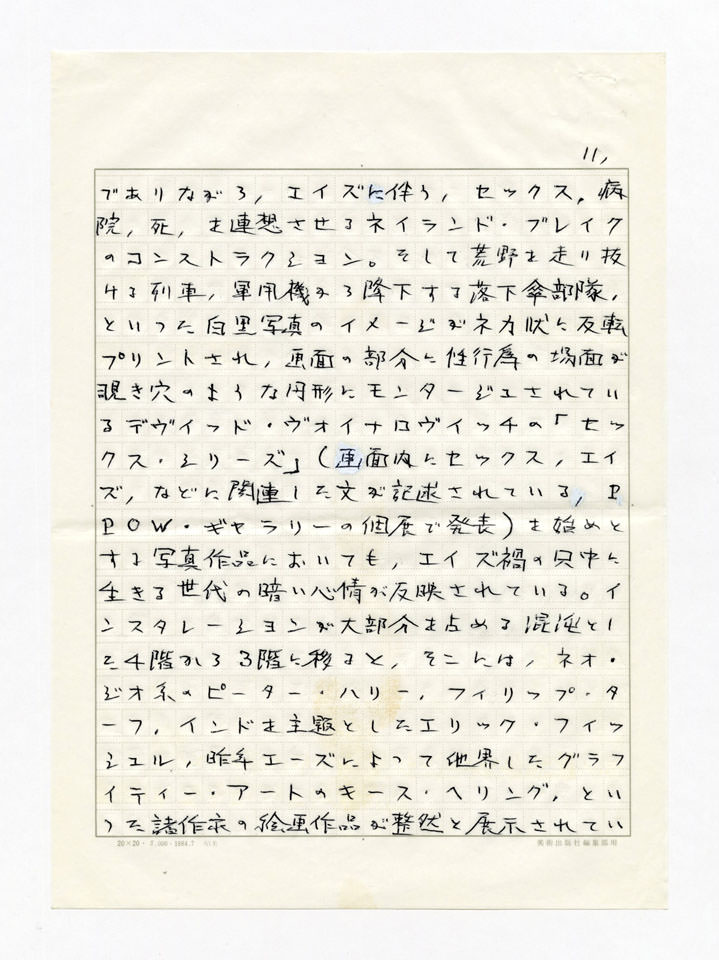 11,
でありながら，エイズに伴う，セックス，病
院，死，を連想させるネイランド・ブレイク
のコンストラクション。そして荒野を走り抜
ける列車，軍用機から降下する落下傘部隊，
といった白黒写真のイメージがネガ状に反転
プリントされ，画面の部分に性行為の場面が
覗き穴のような円形にモンタージュされてい
るデヴィッド・ヴォイナロヴィッチの「セッ
クス・シリーズ」（画面内にセックス，エイ
ズ，などに関連した文が記述されている，P
POW・ギャラリーの個展で発表）を始めと
する写真作品においても，エイズ禍の只中に
生きる世代の暗い心情が反映されている。イ
ンスタレーションが大部分を占める混沌とし
た4階から3階に移ると，そこには，ネオ・
ジオ系のピーター・ハリー，フィリップ・タ
ーフ，インドを主題としたエリック・フィッ
シェル，昨年エーズによって他界したグラフ
ィティー・アートのキース・ヘリング，とい
った諸作家の絵画作品が整然と展示されてい
20×20・5,000・1984.7
美術出版社編集部用